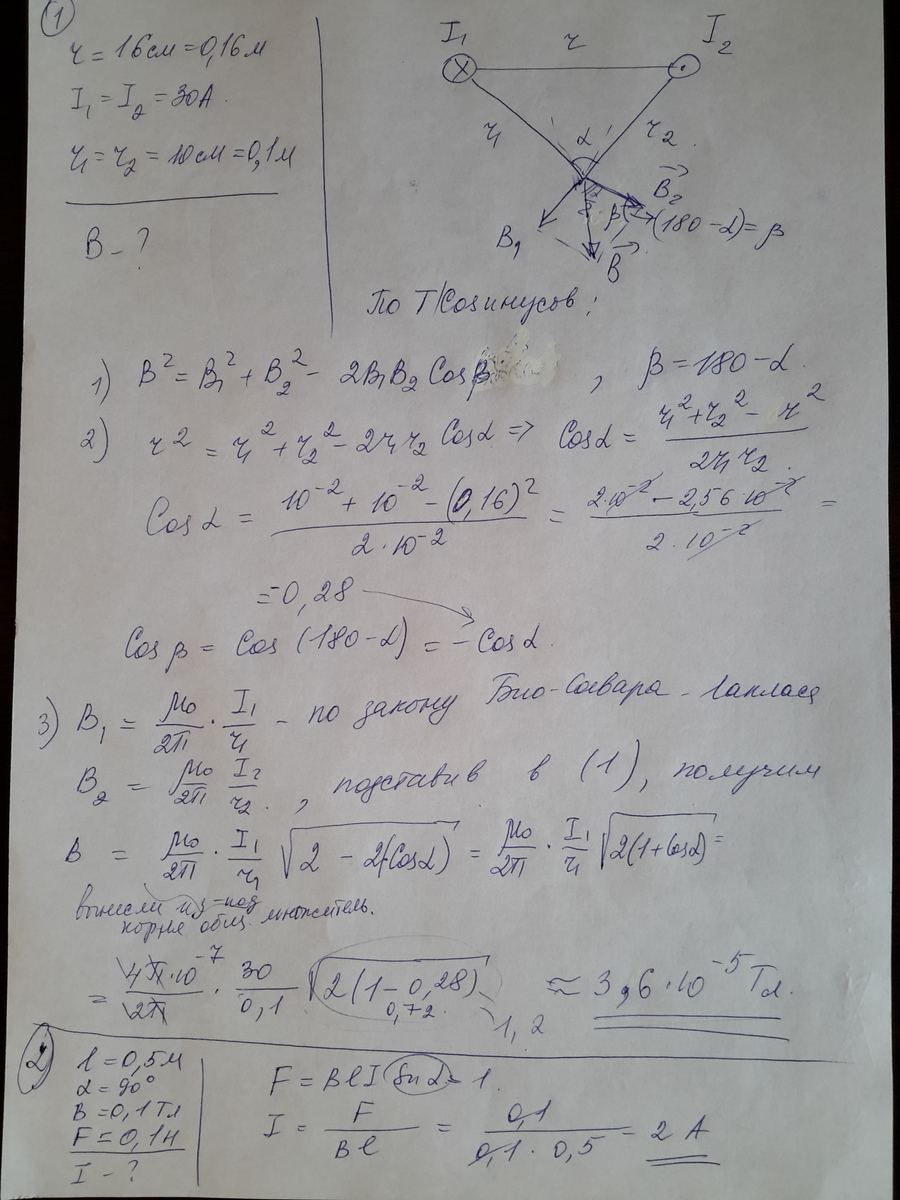 1
r = 16 см = 0,16 м
I₁ = I₂ = 30 А.
r₁ = r₂ = 10 см = 0,1 м
B - ?
I₁ r I₂
r₁ α r₂.
B₁ B⃗ B⃗₂ β (180 - α) = β
По Т/Cosинусов:
1) B² = B₁² + B₂² - 2B₁B₂ Cosβ , β = 180 - α.
2) r² = r₁² + r₂² - 2r₁r₂ Cosα => Cosα = (r₁² + r₂² - r²) / (2r₁r₂).
Cosα = (10⁻² + 10⁻² - (0,16)²) / (2·10⁻²) = (2·10⁻² - 2,56·10⁻²) / (2·10⁻²) =
= -0,28
Cosβ = Cos(180 - α) = - Cosα.
3) B₁ = μ₀/2π · I₁/r₁ - по закону Био-Савара-Лапласа
B₂ = μ₀/2π I₂/r₂. , подставив в (1), получим
B = μ₀/2π · I₁/r₁ √(2 - 2(-Cosα)) = μ₀/2π · I₁/r₁ √(2(1 + Cosα)) =
вынесли из-под
корня общ. множитель.
= (4π·10⁻⁷)/(2π) · 30/0,1 √(2(1 - 0,28)) ≈ 3,6·10⁻⁵ Тл.
0,72 1,2
2
l = 0,5 м
α = 90°
B = 0,1 Тл
F = 0,1 Н
I - ?
F = BlI Sinα = 1.
I = F/(Bl) = 0,1/(0,1 · 0,5) = 2 А